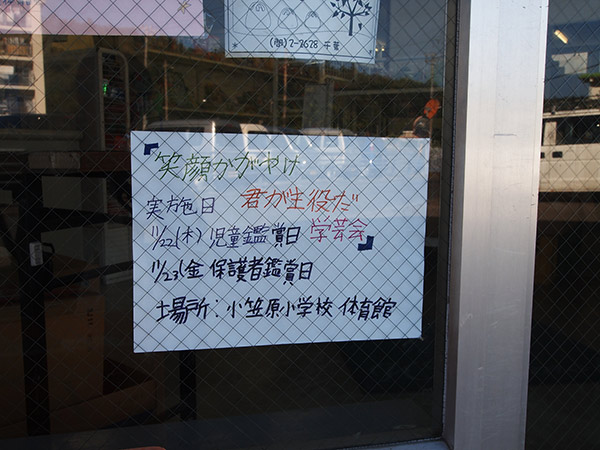 (内)2-2628 千葉
「笑顔かがやけ
君が主役だ
学芸会」
実施日
11/22(木)児童鑑賞日
11/23(金)保護者鑑賞日
場所:小笠原小学校 体育館